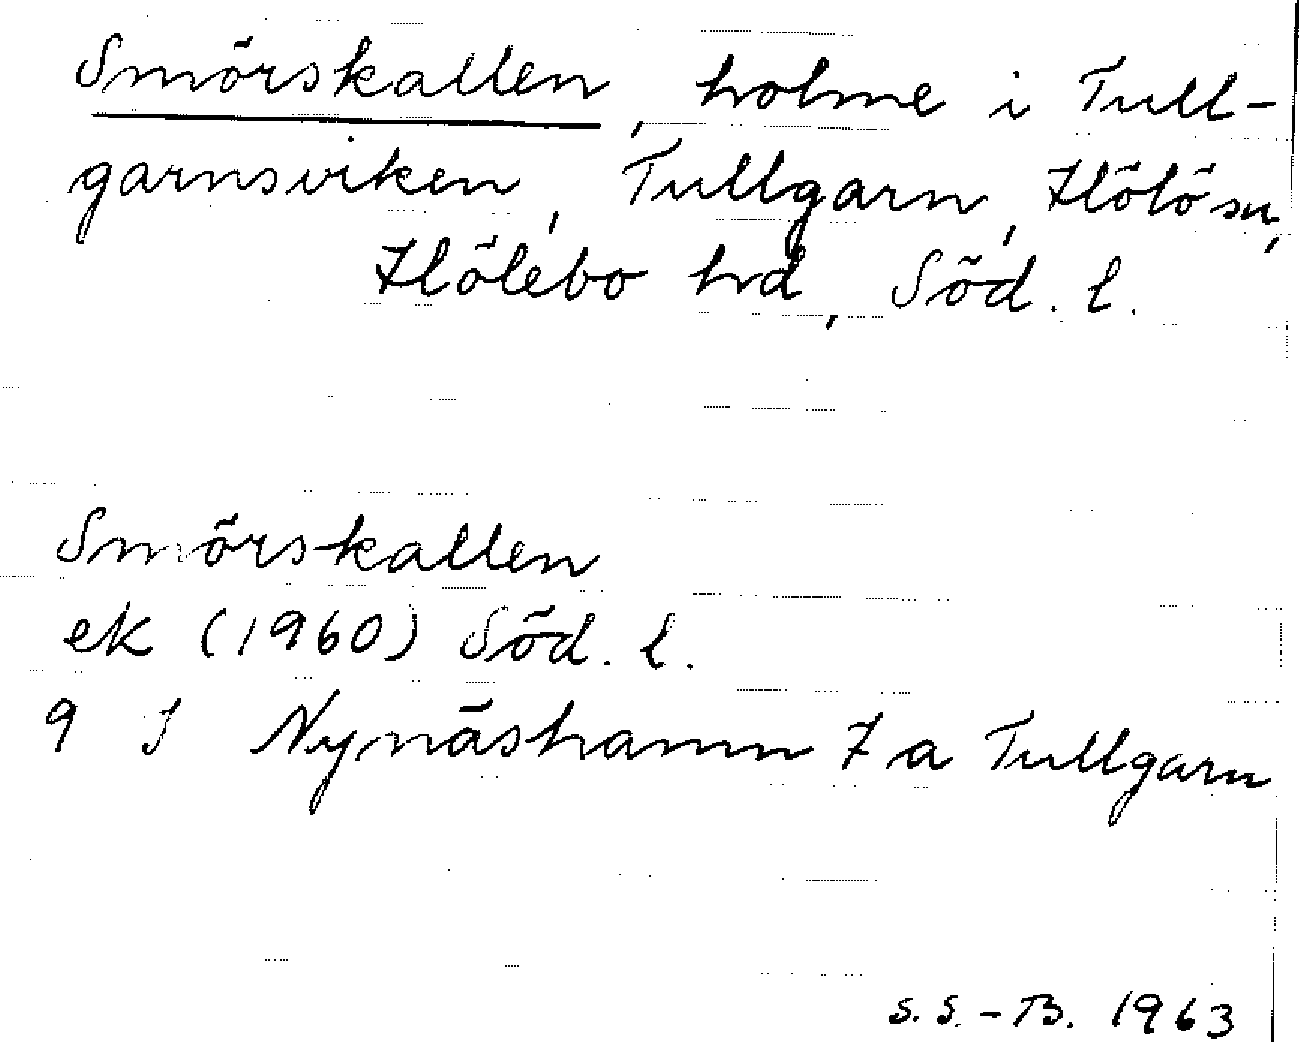 Smörskallen, holme i Tull-
garnsviken, Tullgarn, Hölö sn,
Hölebo hd, Söd. l.
Smörskallen
ek (1960) Söd. l.
9 I Nynäshamn 7 a Tullgarn
S. S. - B. 1963